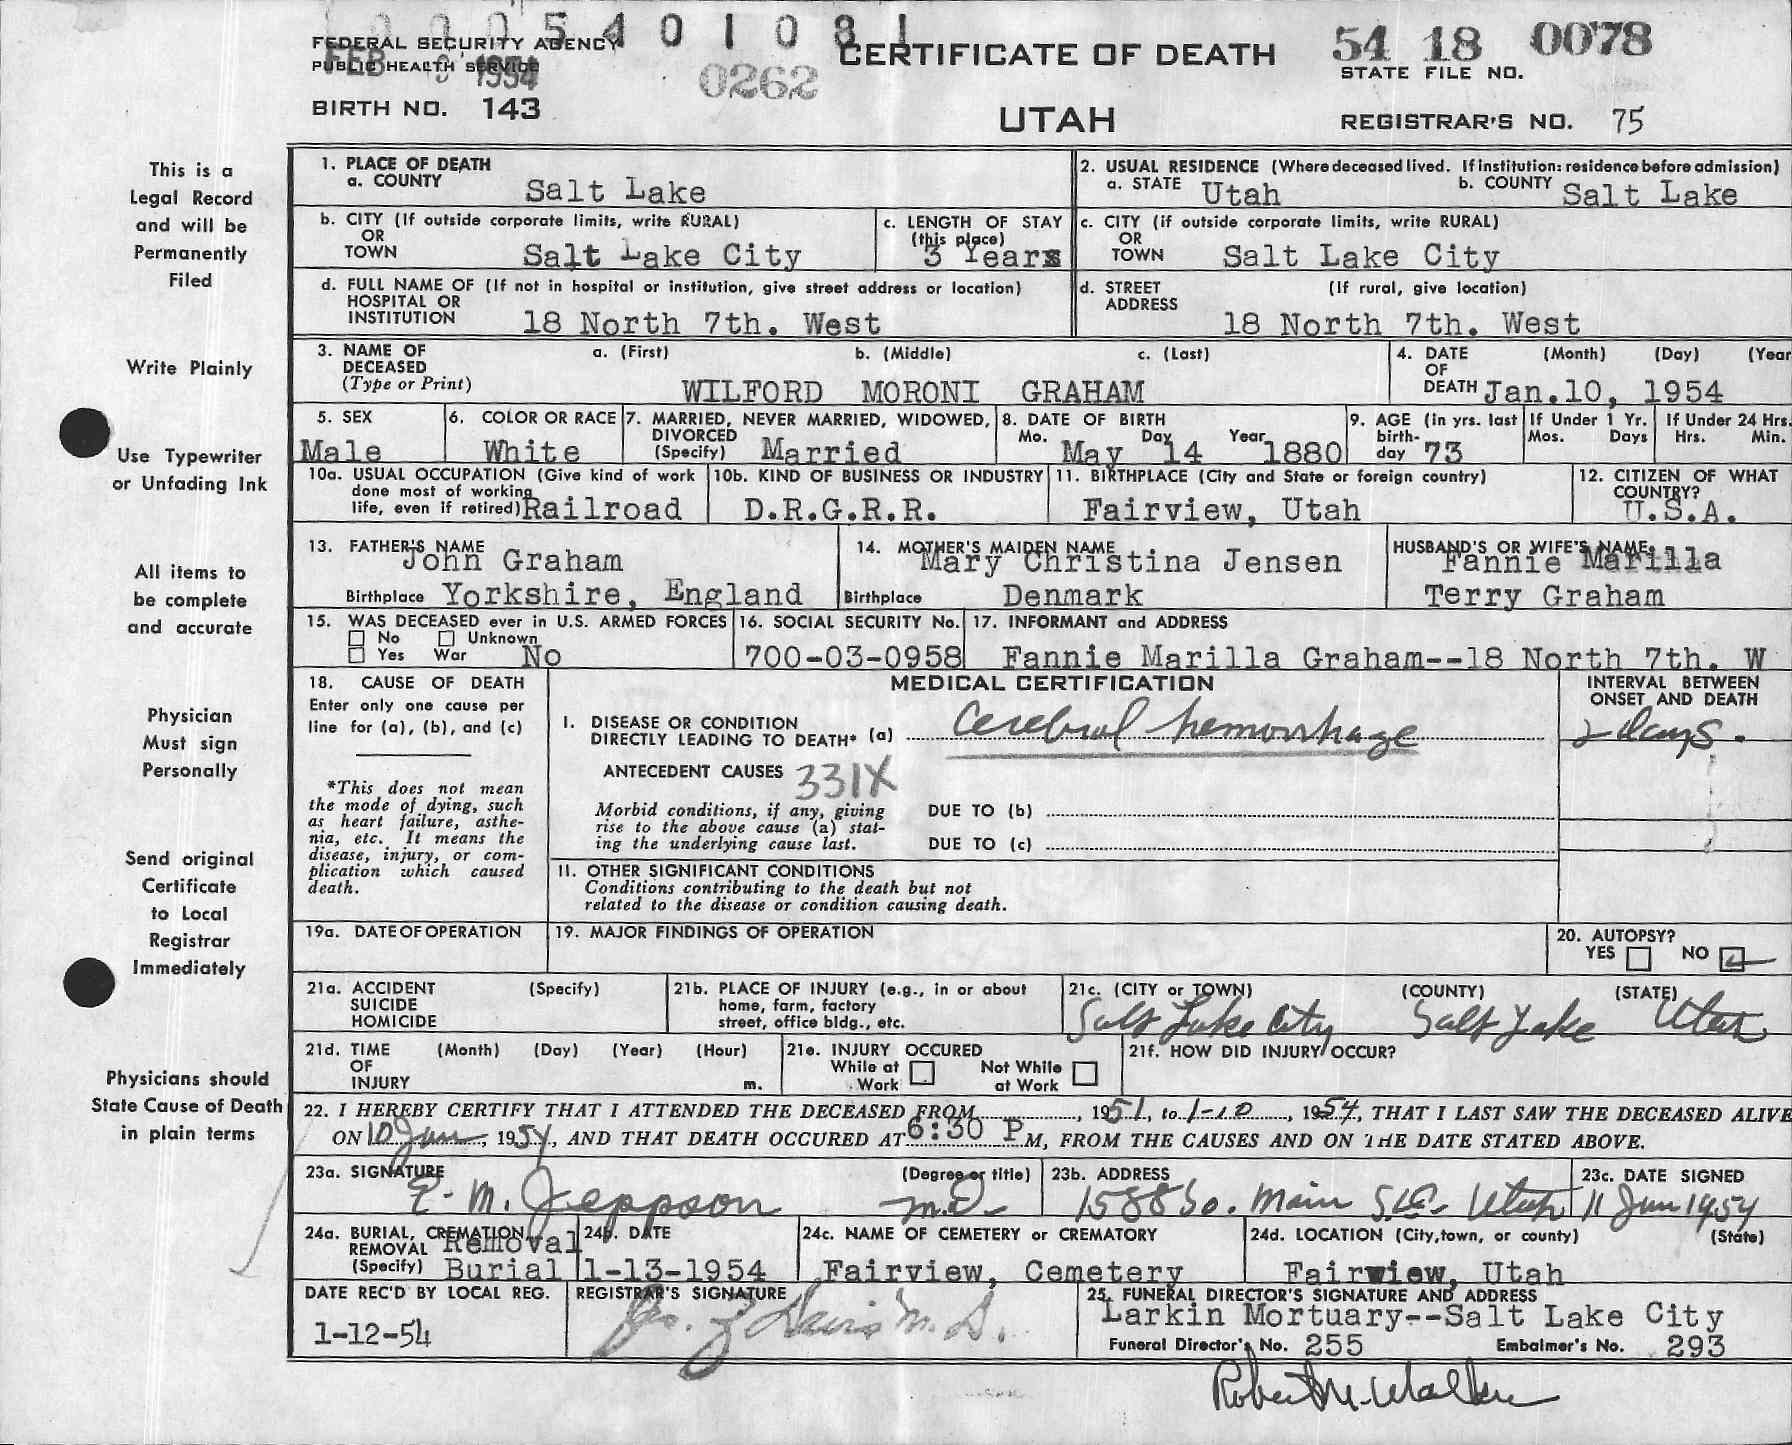 0 0 5 4 0 1 0 8 1
FEDERAL SECURITY AGENCY
PUBLIC HEALTH SERVICE
FEB 9 1954
0262
CERTIFICATE OF DEATH
UTAH
54 18 0078
STATE FILE NO.
BIRTH NO. 143
REGISTRAR'S NO. 75
This is a
Legal Record
and will be
Permanently
Filed
Write Plainly
Use Typewriter
or Unfading Ink
All items to
be complete
and accurate
Physician
Must sign
Personally
Send original
Certificate
to Local
Registrar
Immediately
Physicians should
State Cause of Death
in plain terms
1. PLACE OF DEATH
a. COUNTY Salt Lake
2. USUAL RESIDENCE (Where deceased lived. If institution: residence before admission)
a. STATE Utah b. COUNTY Salt Lake
b. CITY (If outside corporate limits, write RURAL)
OR
TOWN Salt Lake City
c. LENGTH OF STAY
(this place)
3 Years
c. CITY (if outside corporate limits, write RURAL)
OR
TOWN Salt Lake City
d. FULL NAME OF (If not in hospital or institution, give street address or location)
HOSPITAL OR
INSTITUTION 18 North 7th. West
d. STREET (If rural, give location)
ADDRESS
18 North 7th. West
3. NAME OF DECEASED
(Type or Print)
a. (First) b. (Middle) c. (Last)
WILFORD MORONI GRAHAM
4. DATE (Month) (Day) (Year
OF
DEATH Jan.10, 1954
5. SEX
Male
6. COLOR OR RACE
White
7. MARRIED, NEVER MARRIED, WIDOWED,
DIVORCED
(Specify) Married
8. DATE OF BIRTH
Mo. Day Year
May 14 1880
9. AGE (in yrs. last
birth-
day 73
If Under 1 Yr.
Mos. Days
If Under 24 Hrs.
Hrs. Min.
10a. USUAL OCCUPATION (Give kind of work
done most of working
life, even if retired) Railroad
10b. KIND OF BUSINESS OR INDUSTRY
D.R.G.R.R.
11. BIRTHPLACE (City and State or foreign country)
Fairview, Utah
12. CITIZEN OF WHAT
COUNTRY?
U.S.A.
13. FATHER'S NAME
John Graham
Birthplace Yorkshire, England
14. MOTHER'S MAIDEN NAME
Mary Christina Jensen
Birthplace Denmark
HUSBAND'S OR WIFE'S NAME:
Fannie Marilla
Terry Graham
15. WAS DECEASED ever in U.S. ARMED FORCES
No Unknown
Yes War No
16. SOCIAL SECURITY No.
700-03-0958
17. INFORMANT and ADDRESS
Fannie Marilla Graham--18 North 7th. W
18. CAUSE OF DEATH
Enter only one cause per
line for (a), (b), and (c)
*This does not mean
the mode of dying, such
as heart failure, asthe-
nia, etc. It means the
disease, injury, or com-
plication which caused
death.
MEDICAL CERTIFICATION
I. DISEASE OR CONDITION
DIRECTLY LEADING TO DEATH* (a) Cerebral hemorrhage
INTERVAL BETWEEN
ONSET AND DEATH
2 days.
ANTECEDENT CAUSES 331X
Morbid conditions, if any, giving
rise to the above cause (a) stat-
ing the underlying cause last.
DUE TO (b)
DUE TO (c)
11. OTHER SIGNIFICANT CONDITIONS
Conditions contributing to the death but not
related to the disease or condition causing death.
19a. DATE OF OPERATION
19. MAJOR FINDINGS OF OPERATION
20. AUTOPSY?
YES NO
21a. ACCIDENT (Specify)
SUICIDE
HOMICIDE
21b. PLACE OF INJURY (e.g., in or about
home, farm, factory
street, office bldg., etc.
21c. (CITY or TOWN) (COUNTY) (STATE)
Salt Lake City Salt Lake Utah
21d. TIME (Month) (Day) (Year) (Hour)
OF
INJURY m.
21e. INJURY OCCURED
While at Work Not While at Work
21f. HOW DID INJURY OCCUR?
22. I HEREBY CERTIFY THAT I ATTENDED THE DECEASED FROM , 1951, to 1-10, 1954, THAT I LAST SAW THE DECEASED ALIVE
ON 10 Jan, 1954, AND THAT DEATH OCCURED AT 6:30 P M, FROM THE CAUSES AND ON THE DATE STATED ABOVE.
23a. SIGNATURE (Degree or title)
E. M. Jeppson M.D.
23b. ADDRESS
1588 So. Main S.L.C. Utah
23c. DATE SIGNED
11 Jan 1954
24a. BURIAL, CREMATION,
REMOVAL
(Specify) Removal
Burial
24b. DATE
1-13-1954
24c. NAME OF CEMETERY OR CREMATORY
Fairview, Cemetery
24d. LOCATION (City, town, or county) (State)
Fairview, Utah
DATE REC'D BY LOCAL REG.
1-12-54
REGISTRAR'S SIGNATURE
Geo. Z Davis M.D.
25. FUNERAL DIRECTOR'S SIGNATURE AND ADDRESS
Larkin Mortuary--Salt Lake City
Funeral Director's No. 255 Embalmer's No. 293
Robert M. Walker